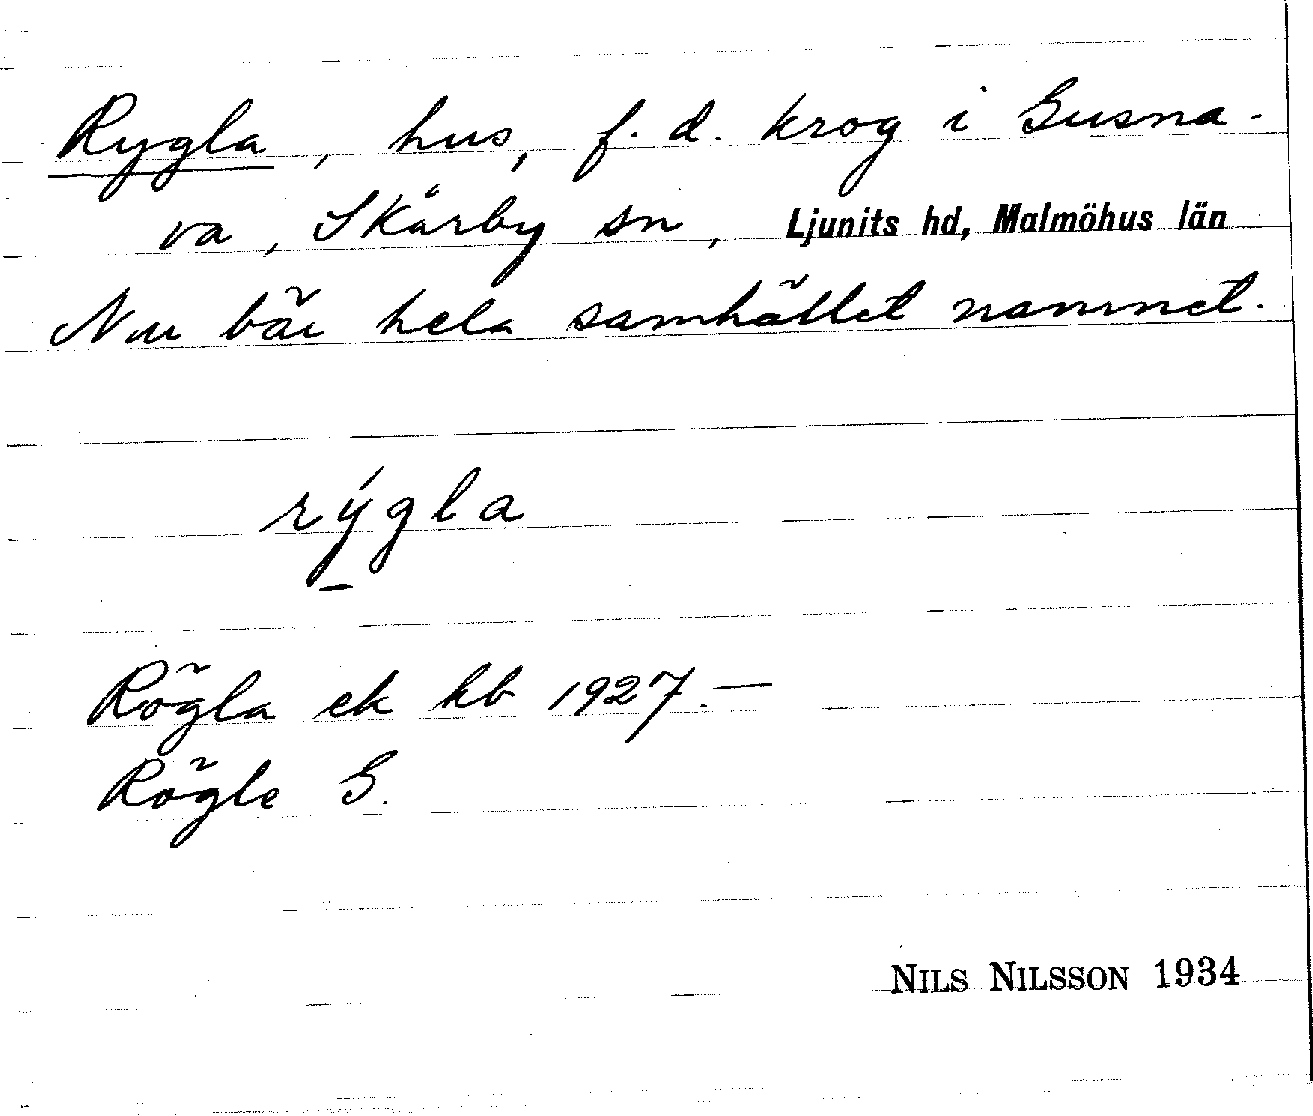 Rygla, hus, f. d. krog i Gusna-
va, Skårby sn, Ljunits hd, Malmöhus län
Nu bär hela samhället namnet.
rýgla
Rögla ek kb 1927. —
Rögle G.
NILS NILSSON 1934